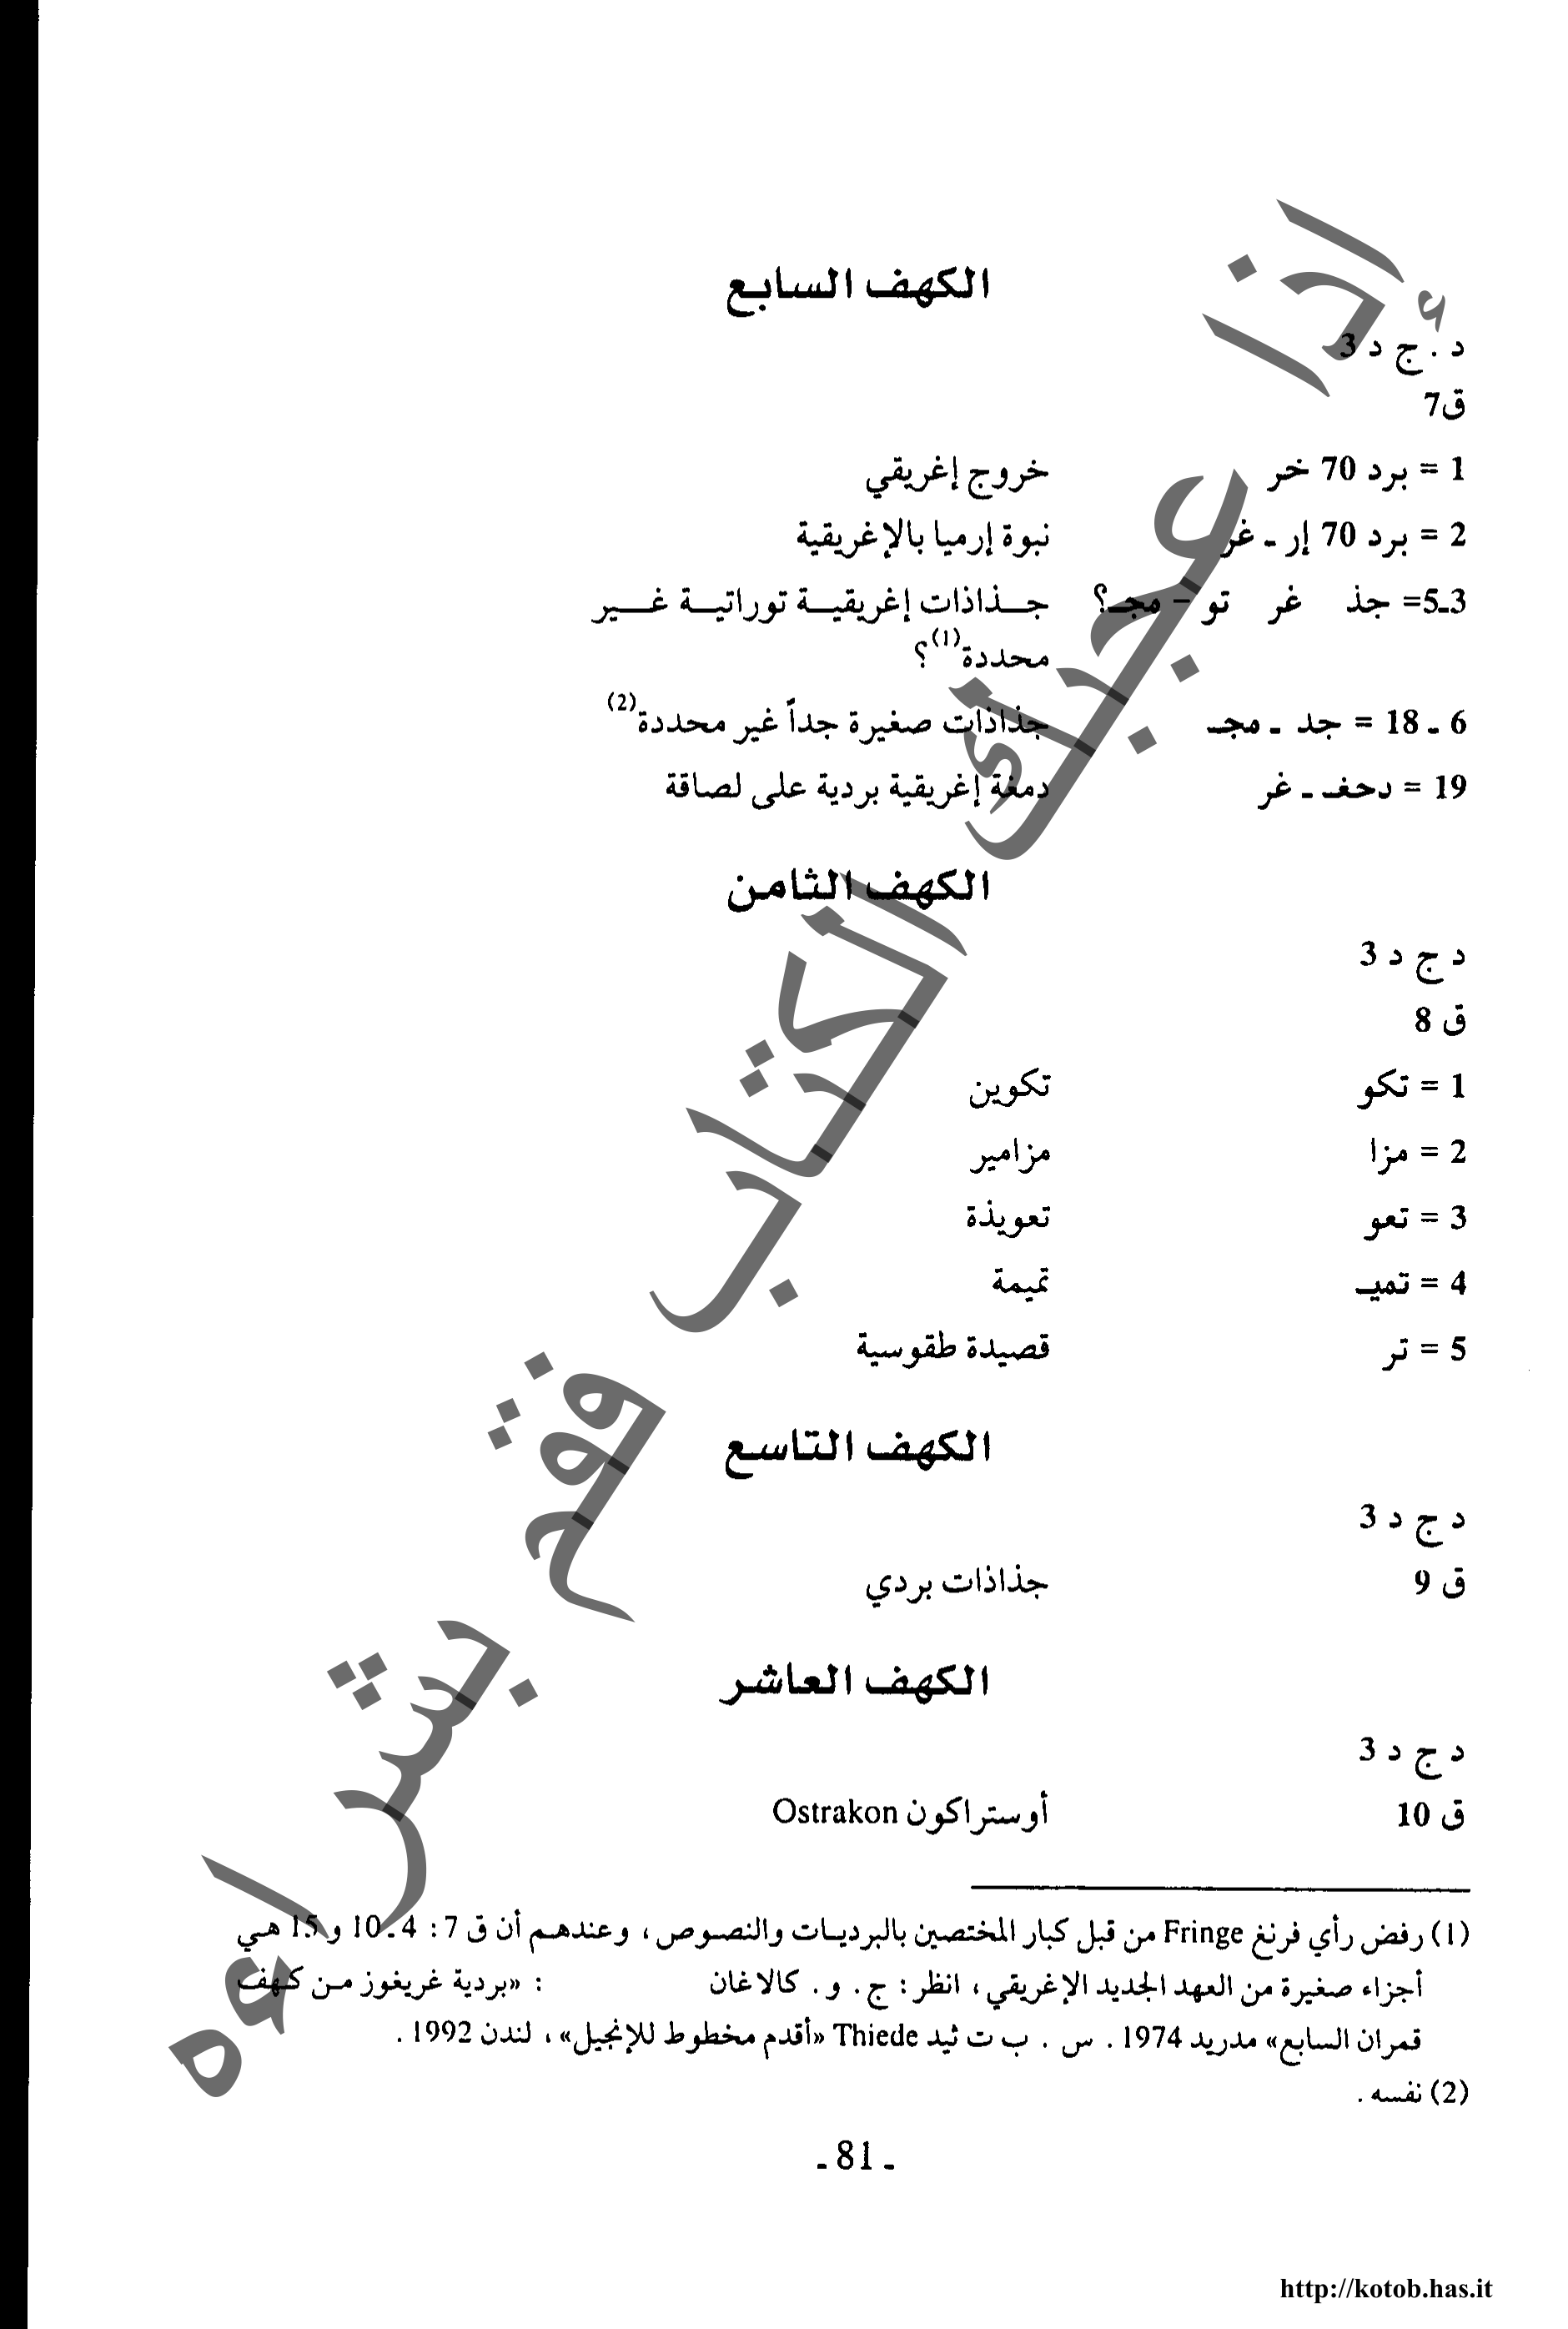 الكهف السابع
د . ج د 3
ق7
1 = برد 70 خر خروج إغريقي
2 = برد 70 إر ـ غر نبوة إرميا بالإغريقية
3ـ5= جذ غر تو – مجـ؟ جـــذاذات إغريقيـــة توراتيـــة غـــــير
محددة(1)؟
6 ـ 18 = جد ـ مجـ جذاذات صغيرة جداً غير محددة(2)
19 = دحغـ ـ غر دمغة إغريقية بردية على لصاقة
الكهف الثامن
د ج د 3
ق 8
1 = تكو تكوين
2 = مزا مزامير
3 = تعو تعويذة
4 = تميـ تميمة
5 = تر قصيدة طقوسية
الكهف التاسع
د ج د 3
ق 9 جذاذات بردي
الكهف العاشر
د ج د 3
ق 10 أوستراكون Ostrakon
(1) رفض رأي فرنغ Fringe من قبل كبار المختصين بالبرديـات والنصـوص، وعندهـم أن ق 7 : 4ـ10 و15 هـي
أجزاء صغيرة من العهد الجديد الإغريقي، انظر: ج. و. كالاغان : «بردية غريغوز مـن كـهف
قمران السابع» مدريد 1974 . س . ب ت ثيد Thiede «أقدم مخطوط للإنجيل»، لندن 1992 .
(2) نفسه .
ـ 81 ـ
http://kotob.has.it
أذا عجبك الكتاب قم بشراءه